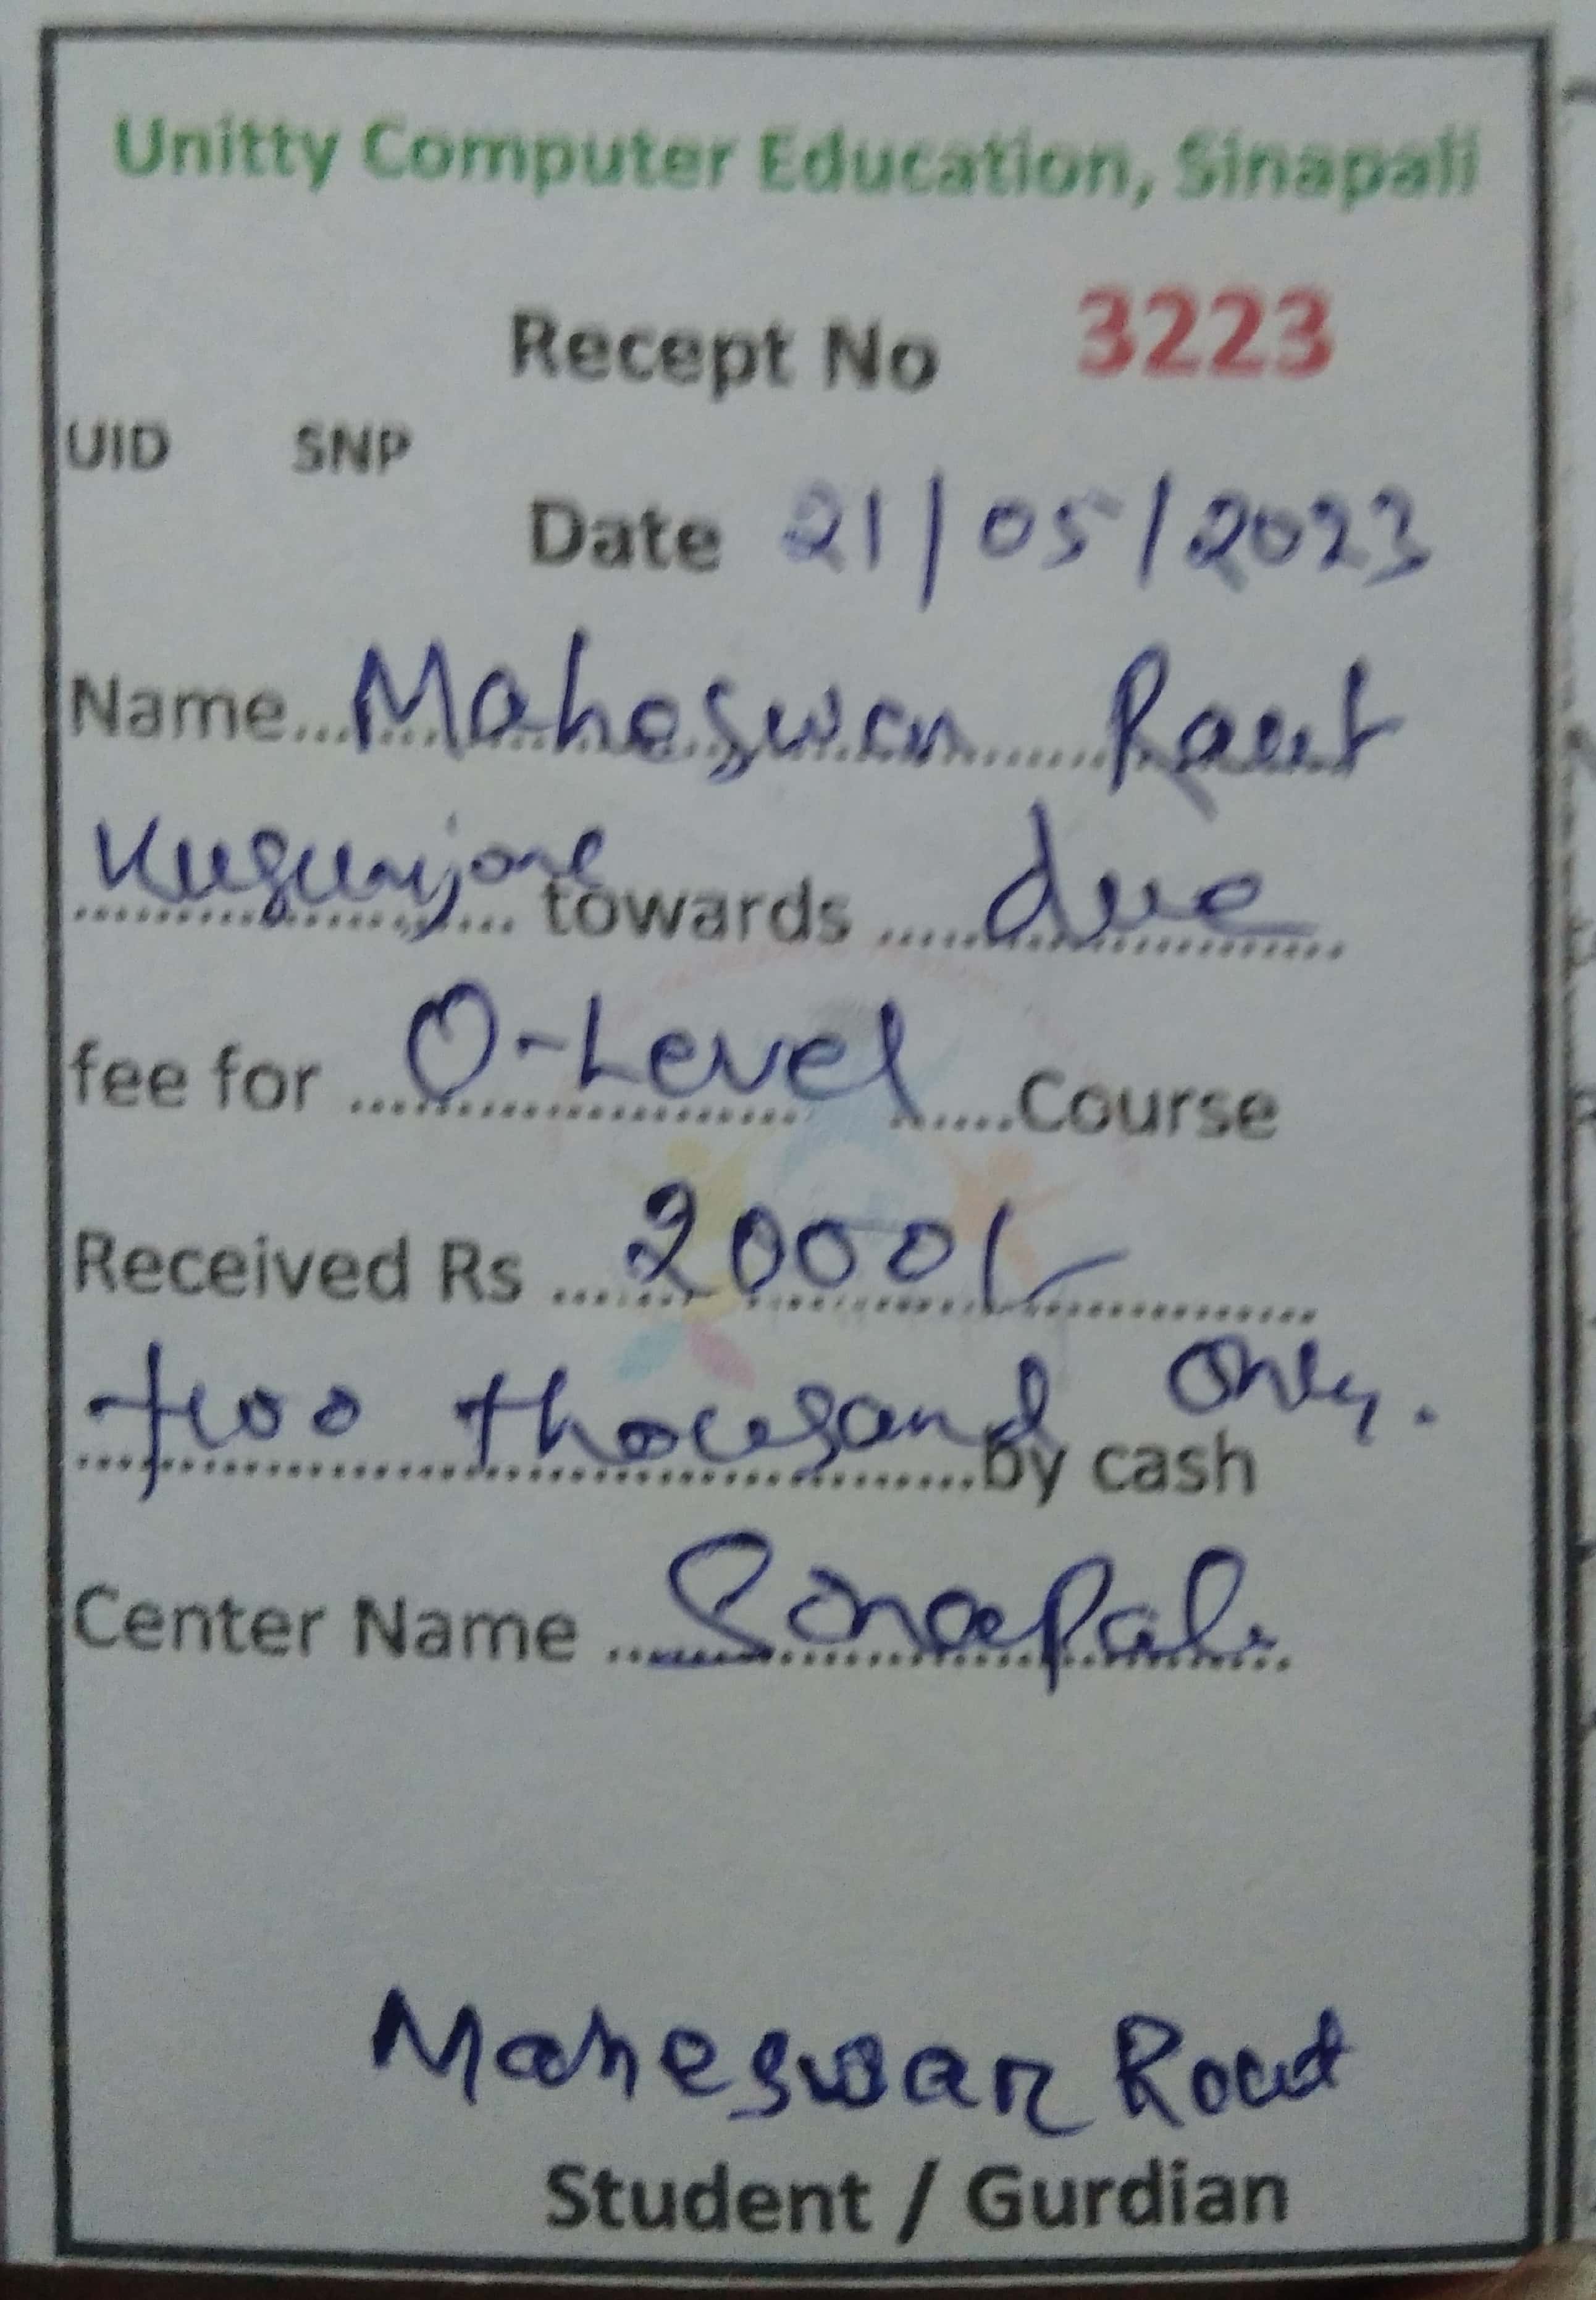 Unitty Computer Education, Sinapali
Recept No 3223
UID SNP
Date 21/05/2023
Name... Maheswar Raut
towards ..... due
fee for ..... O-Level ..... Course
Received Rs ... 2000/-
two thousand Only.
by cash
Center Name ..... Sinapali
Maheswar Rout
Student / Gurdian